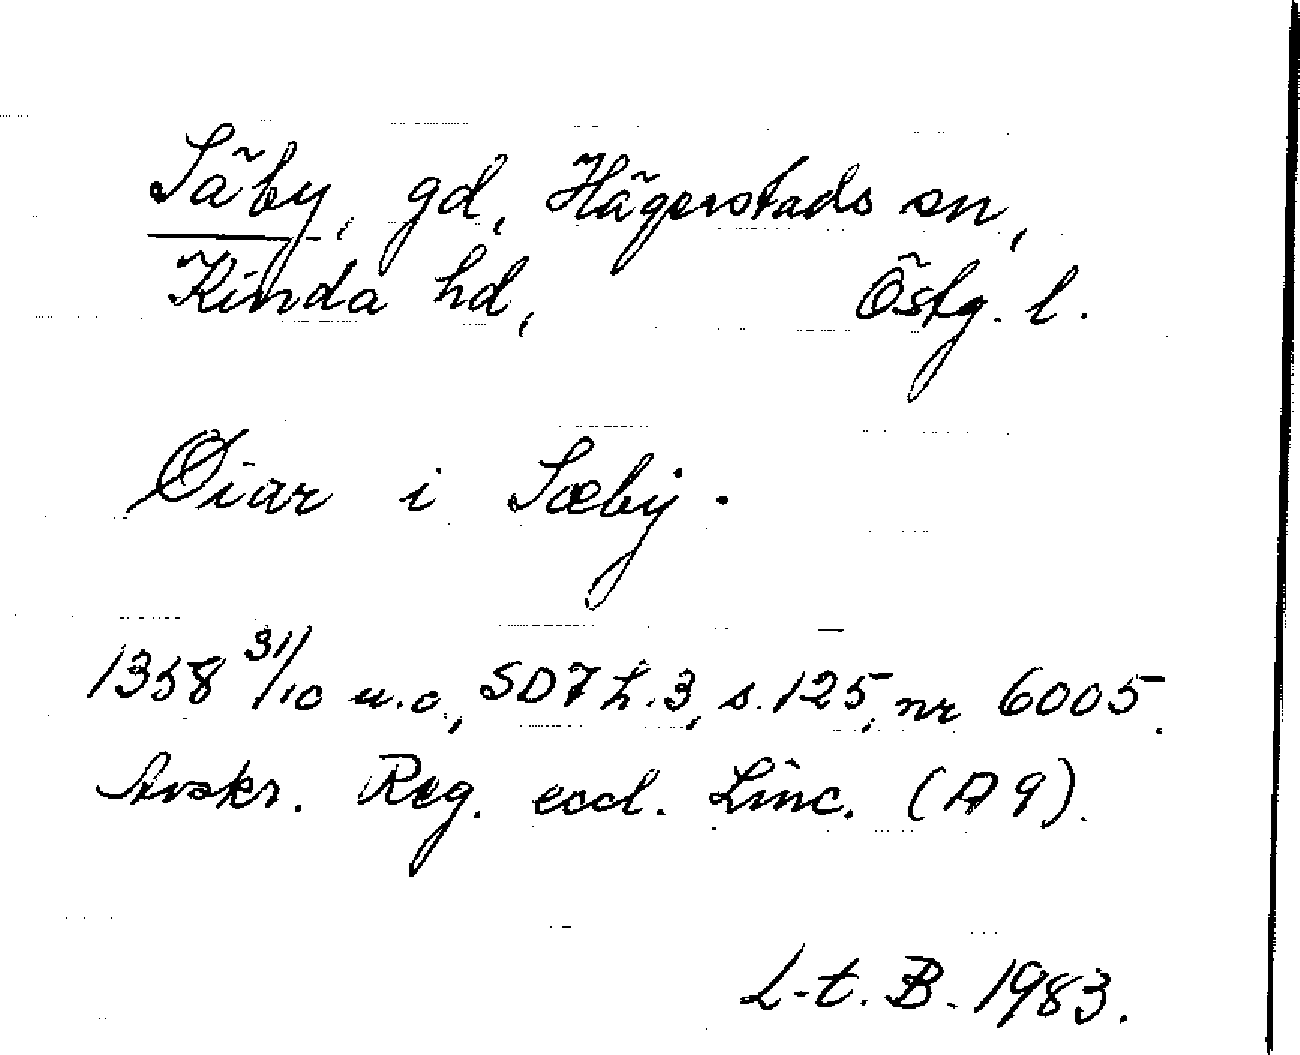 Säby, gd, Hägerstads sn,
Kinda hd, Östg. l.
Øiar i Sæby.
1358 31/10 u.o., SD7 h.3, s.125, nr 6005.
Avskr. Reg. eccl. Linc. (A 9).
L-t. B. 1983.